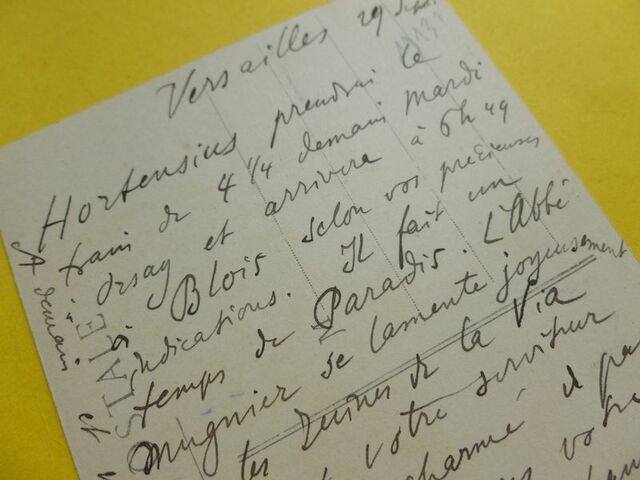 Versailles 29 Sept
Hortensius prendra le
train de 4 1/4 demain mardi
orsay et arrivera à 6h49
Blois selon vos précieuses
indications. Il fait un
temps de Paradis. L'Abbé
Mugnier se lamente joyeusement
les ruines de la Via
votre serviteur
charmé
votre
A demain et
STALE